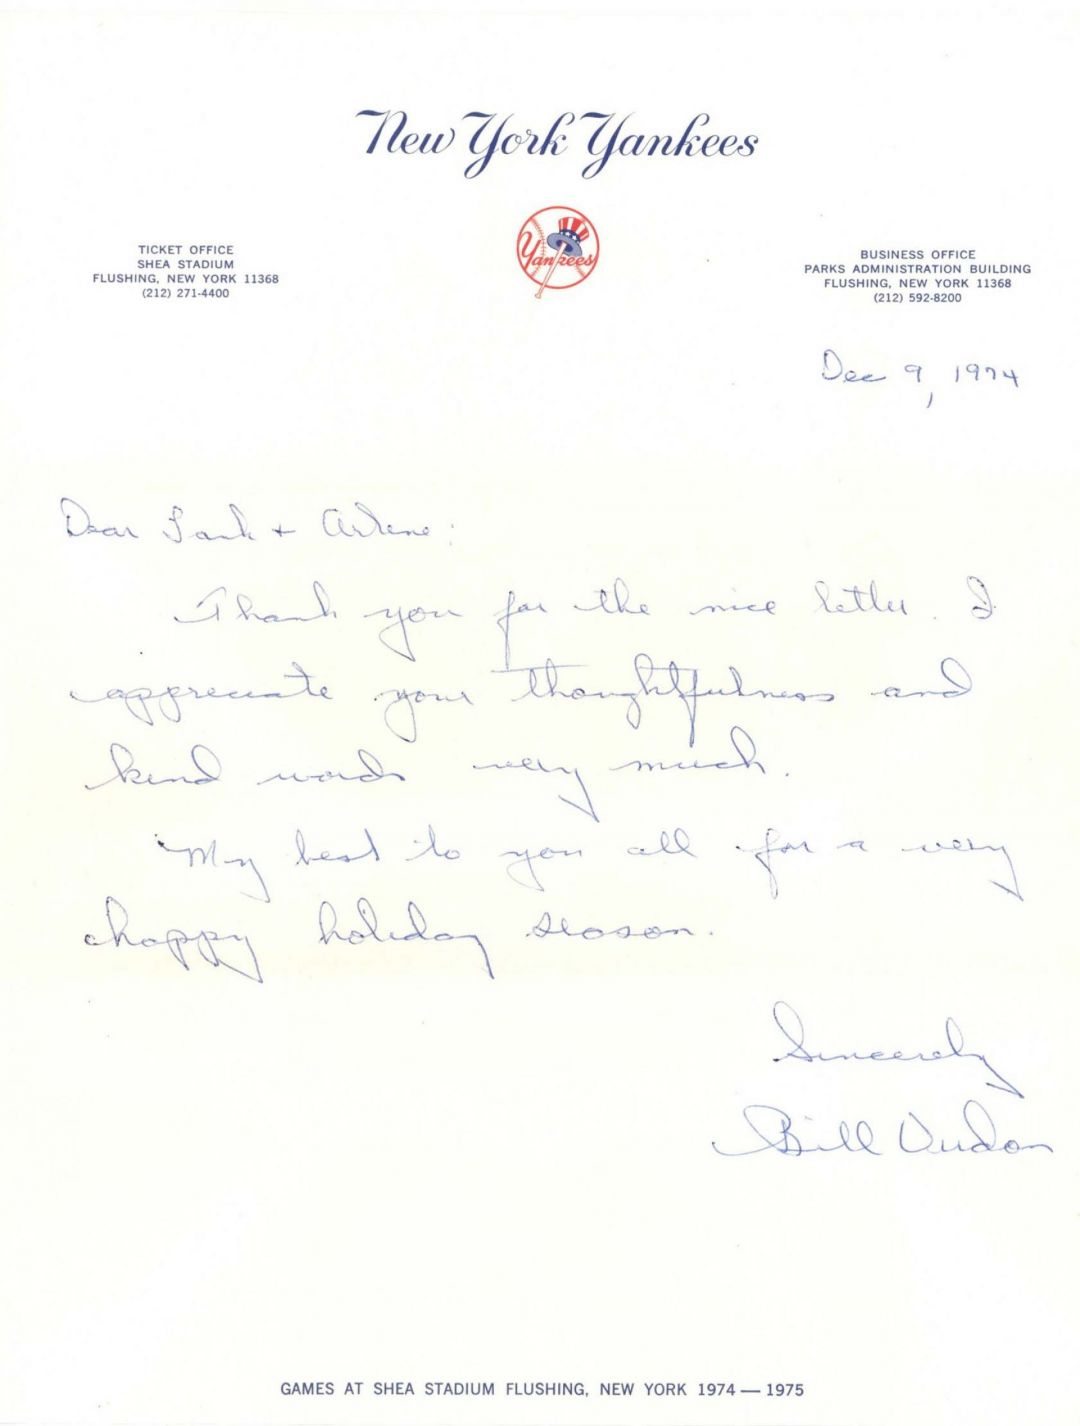 New York Yankees
Yankees
TICKET OFFICE
SHEA STADIUM
FLUSHING, NEW YORK 11368
(212) 271-4400
BUSINESS OFFICE
PARKS ADMINISTRATION BUILDING
FLUSHING, NEW YORK 11368
(212) 592-8200
Dec 9, 1974
Dear + Arlene:
Thank you for the nice letter. I
appreciate your thoughtfulness and
kind words very much.
My best to you all for a very
happy holiday season.
Sincerely
Bill Virdon
GAMES AT SHEA STADIUM FLUSHING, NEW YORK 1974 — 1975